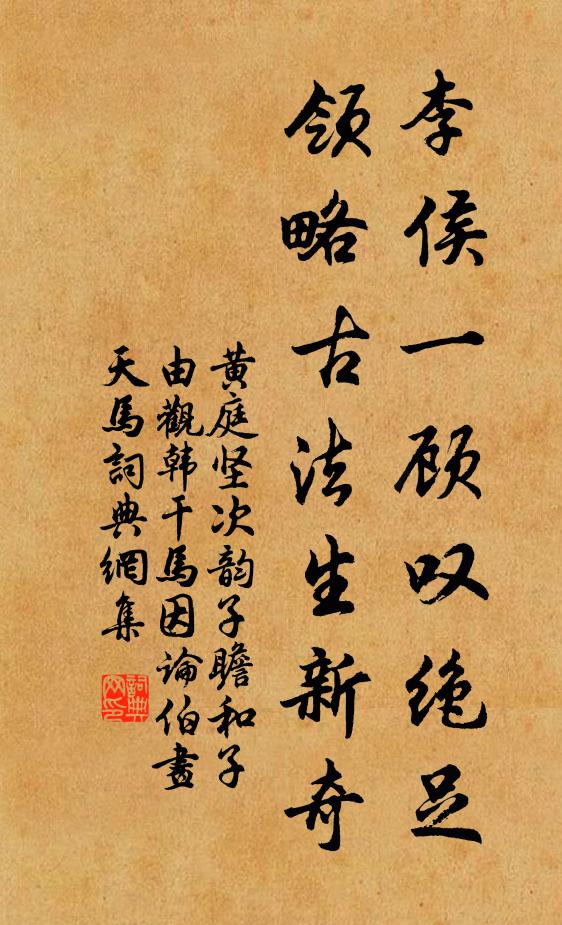 李侯一顾叹绝足
领略古法生新奇
黄庭坚次韵子瞻和子
由觀韩干馬因论伯畫
天馬詞典網集
詞典網印